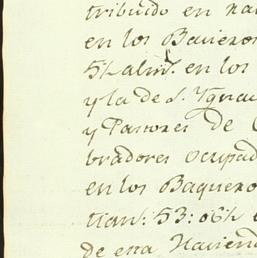 tribuido en
en los Baqueros
5½ alm.s en los
y la de S. Ygnac
y Pastores de
bradores ocupad
en los Baquero
tian.s: 53: 06½
de esta Haciend